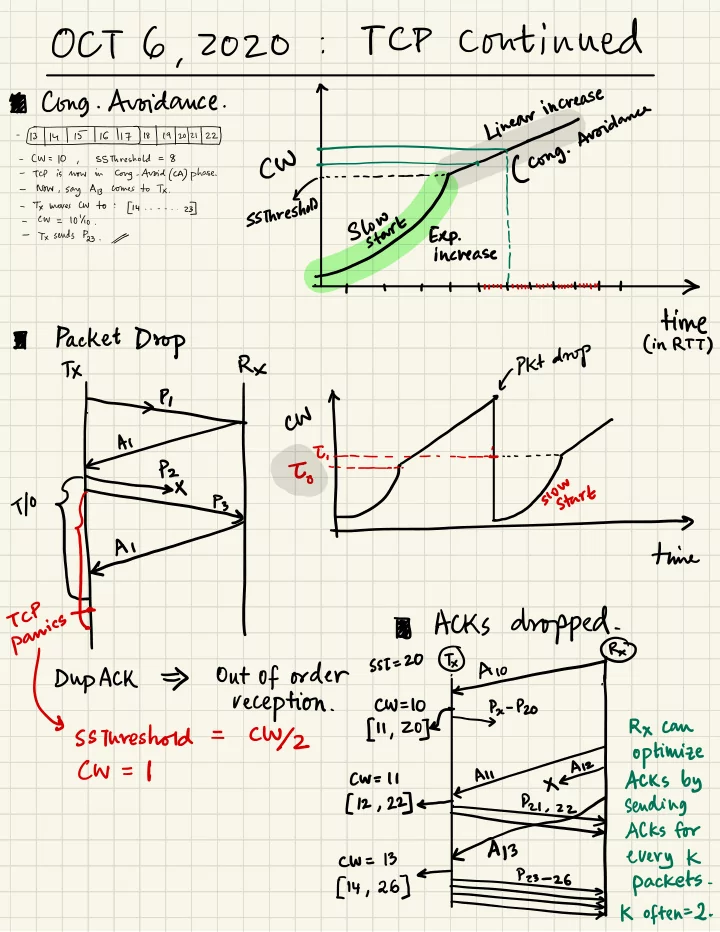 OCT 6, 2020 : TCP Continued
Cong. Avoidance.
- 13 14 15 16 17 18 19 20 21 22
- CW = 10 , SSThreshold = 8
- TCP is now in Cong-Avoid (CA) phase.
- Now, say A13 comes to Tx.
- Tx moves CW to : [14 ...... 23]
- CW = 10 1/10.
- Tx sends P23.
CW
SSThreshold
Slow start
Exp. increase
Linear increase
Cong. Avoidance
time
(in RTT)
Packet Drop
Tx
Rx
P1
A1
P2
X
T/O
P3
A1
TCP
panics
DupACK ⇒ Out of order
reception.
SSThreshold = CW/2
CW = 1
Pkt drop
CW
τ1
τ0
slow
start
time
ACKs dropped.
SST = 20
Tx
Rx
A10
CW=10
[11, 20]
Px-P20
A11
A12
X
CW = 11
[12, 22]
P21, 22
A13
CW = 13
[14, 26]
P23-26
Rx can
optimize
ACKs by
sending
ACKs for
every K
packets.
K often=2.